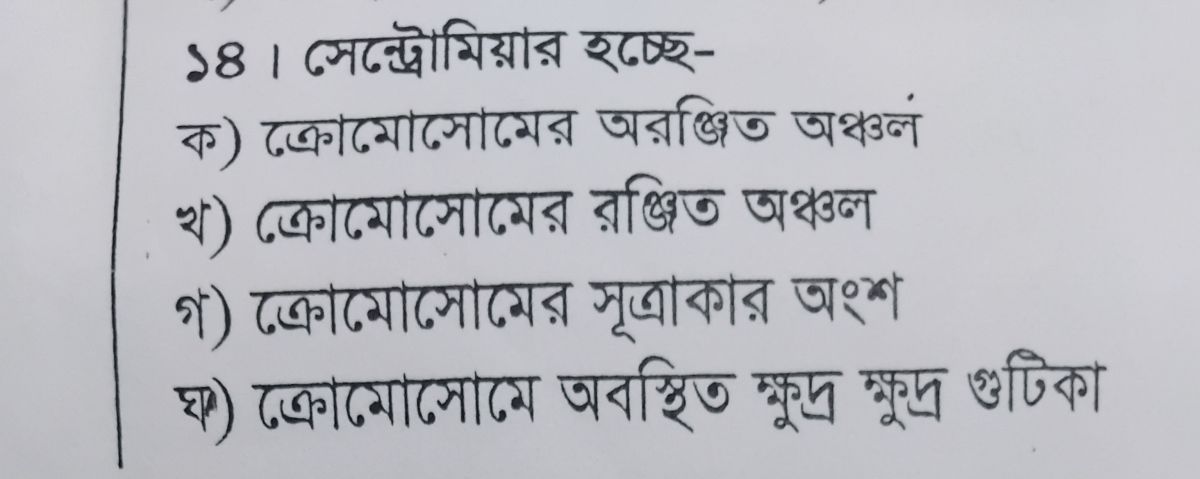 ১৪। সেন্ট্রোমিয়ার হচ্ছে-
ক) ক্রোমোসোমের অরঞ্জিত অঞ্চল
খ) ক্রোমোসোমের রঞ্জিত অঞ্চল
গ) ক্রোমোসোমের সূত্রাকার অংশ
ঘ) ক্রোমোসোমে অবস্থিত ক্ষুদ্র ক্ষুদ্র গুটিকা